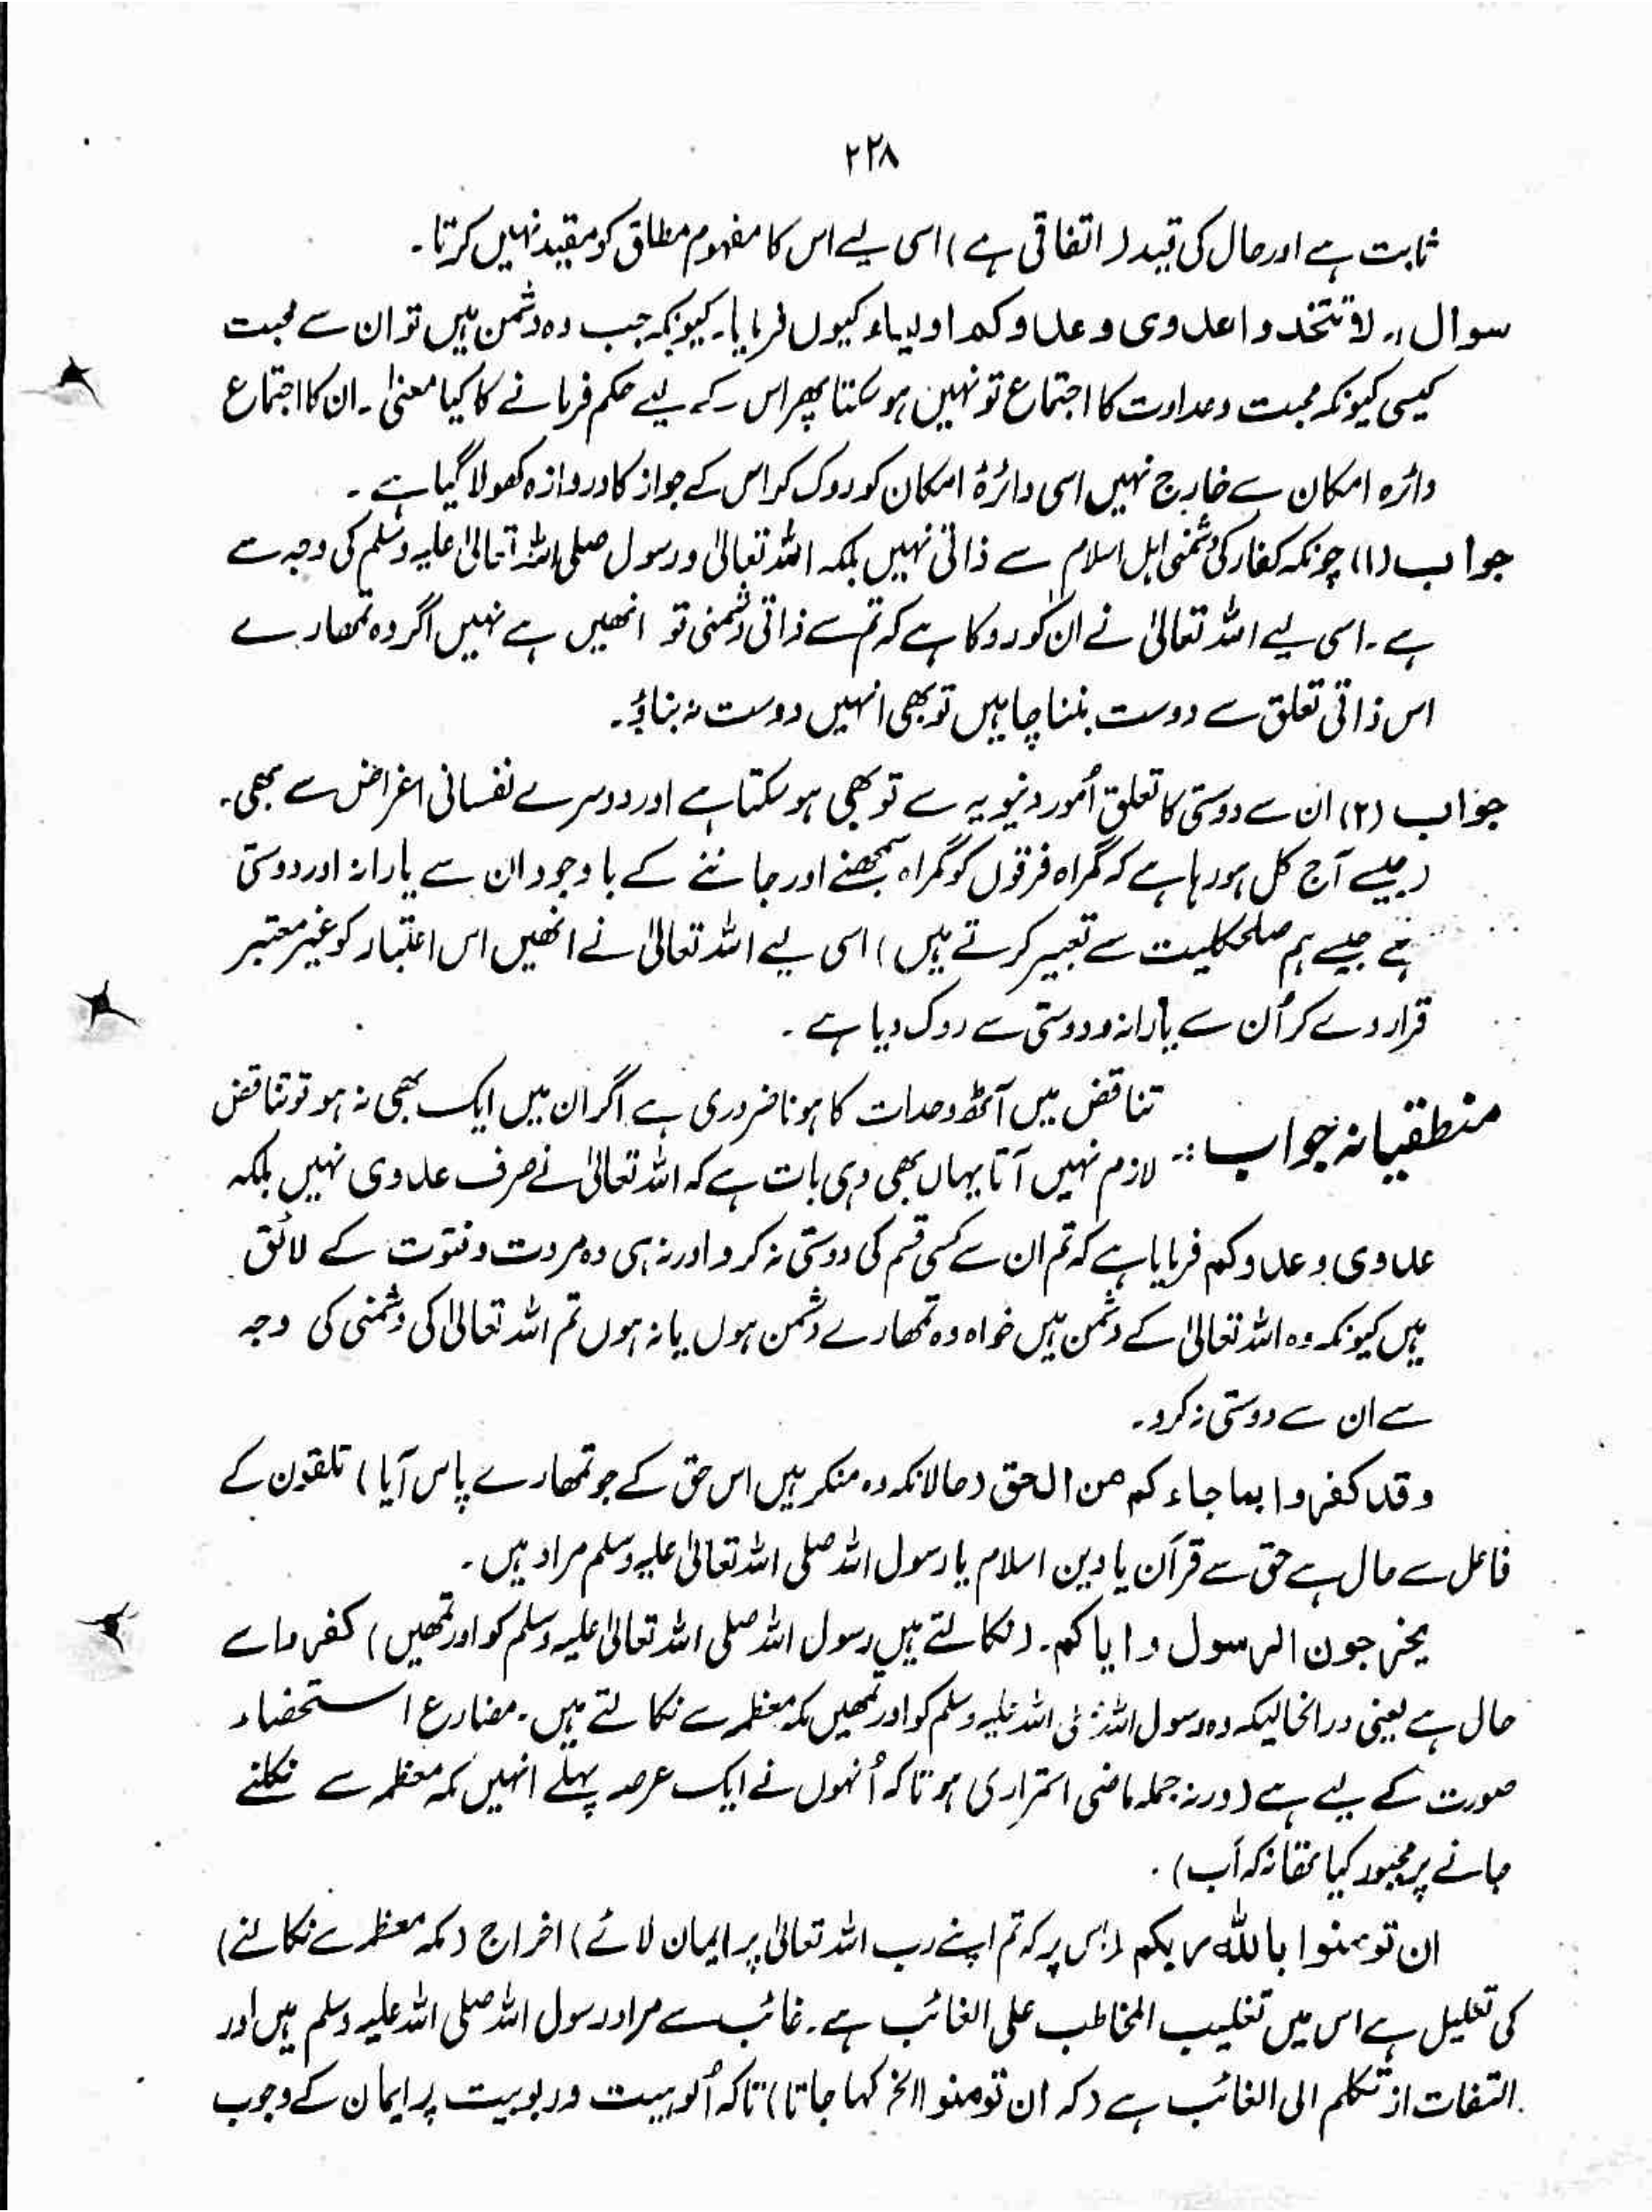 ۲۲۸
ثابت ہے اور حال کی قید (اتفاقی ہے) اسی لیے اس کا مفہوم مطلق کو مقید نہیں کرتا۔
سوال :۔ لا تتخذوا عدوی وعدوکم اولیاء کیوں فرمایا۔ کیونکہ جب وہ دشمن ہیں تو ان سے محبت
کیسی کیونکہ محبت وعداوت کا اجتماع تو نہیں ہو سکتا پھر اس کے لیے حکم فرمانے کا کیا معنیٰ۔ ان کا اجتماع
دائرہ امکان سے خارج نہیں اسی دائرۂ امکان کو روک کر اس کے جواز کا دروازہ کھولا گیا ہے۔
جواب (۱) چونکہ کفار کی دشمنی اہل اسلام سے ذاتی نہیں بلکہ اللہ تعالیٰ و رسول صلی اللہ تعالیٰ علیہ وسلم کی وجہ سے
ہے۔ اسی لیے اللہ تعالیٰ نے ان کو روکا ہے کہ تم سے ذاتی دشمنی تو انھیں ہے نہیں اگر وہ تمھارے
اس ذاتی تعلق سے دوست بننا چاہیں تو بھی انہیں دوست نہ بناؤ۔
جواب (۲) ان سے دوستی کا تعلق اُمور دنیویہ سے تو بھی ہو سکتا ہے اور دوسرے نفسانی اغراض سے بھی۔
(جیسے آج کل ہو رہا ہے کہ گمراہ فرقوں کو گمراہ سمجھنے اور جاننے کے باوجود ان سے یارانہ اور دوستی
ہے جسے ہم صلحکلیت سے تعبیر کرتے ہیں) اسی لیے اللہ تعالیٰ نے انھیں اس اعتبار کو غیر معتبر
قرار دے کر اُن سے یارانہ و دوستی سے روک دیا ہے۔
منطقیانہ جواب :۔ تناقض میں آٹھ وحدات کا ہونا ضروری ہے اگر ان میں ایک بھی نہ ہو تو تناقض
لازم نہیں آتا یہاں بھی وہی بات ہے کہ اللہ تعالیٰ نے صرف عدوی نہیں بلکہ
عدوی وعدوکم فرمایا ہے کہ تم ان سے کسی قسم کی دوستی نہ کرو اور نہ ہی وہ مروت و فتوت کے لائق
ہیں کیونکہ وہ اللہ تعالیٰ کے دشمن ہیں خواہ وہ تمھارے دشمن ہوں یا نہ ہوں تم اللہ تعالیٰ کی دشمنی کی وجہ
سے ان سے دوستی نہ کرو۔
وقد کفروا بما جاءکم من الحق (حالانکہ وہ منکر ہیں اس حق کے جو تمھارے پاس آیا) تلقون کے
فاعل سے حال ہے حق سے قرآن یا دین اسلام یا رسول اللہ صلی اللہ تعالیٰ علیہ وسلم مراد ہیں۔
یخرجون الرسول وایاکم۔ (نکالتے ہیں رسول اللہ صلی اللہ تعالیٰ علیہ وسلم کو اور تمھیں) کفروا سے
حال ہے یعنی درانحالیکہ وہ رسول اللہ صلی اللہ علیہ وسلم کو اور تمھیں مکہ معظمہ سے نکالتے ہیں۔ مضارع استحضاء
صورت کے لیے ہے (ورنہ جملہ ماضی استمراری ہوتا کہ اُنہوں نے ایک عرصہ پہلے انہیں مکہ معظمہ سے نکلنے
جانے پر مجبور کیا تھا نہ کہ اَب)۔
ان تومنوا باللہ ربکم (اس پر کہ تم اپنے رب اللہ تعالیٰ پر ایمان لائے) اخراج (مکہ معظمہ سے نکالنے)
کی تعلیل ہے اس میں تغلیب المخاطب علی الغائب ہے۔ غائب سے مراد رسول اللہ صلی اللہ علیہ وسلم ہیں اور
التفات از تکلم الی الغائب ہے (کہ ان تومنوا الخ کہا جاتا) تاکہ اُلوہیت و ربوبیت پر ایمان کے وجوب